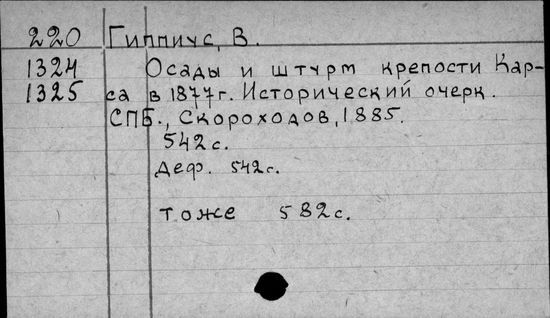 220 Гиппиус, В.
1324 Осады и штурм крепости Кар-
1325 са в 1877г. Исторический очерк.
СПБ., Скороходов, 1885.
542с.
Деф. 542с.
тоже 582с.